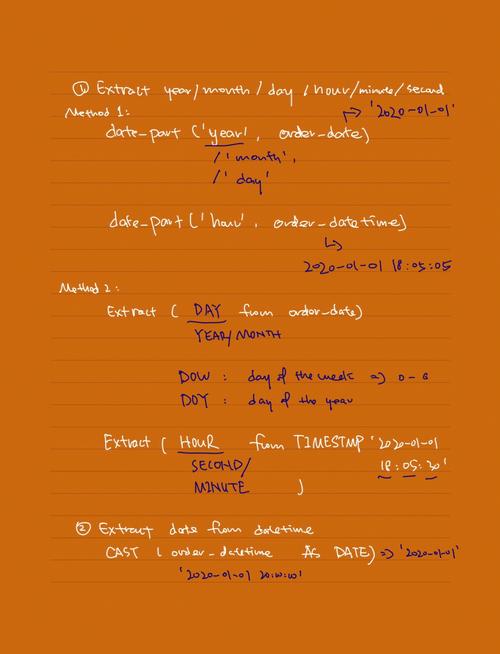 ① Extract year/month/day/hour/minute/second
Method 1: ↳ '2020-01-01'
date_part ('year', order_date)
/'month',
/'day'
date_part ('hour', order_datetime)
↳
2020-01-01 18:05:05
Method 2:
Extract ( DAY from order_date)
YEAR/MONTH
DOW : day of the week => 0-6
DOY : day of the year
Extract ( HOUR from TIMESTMP '2020-01-01
SECOND/ 18:05:30'
MINUTE )
② Extract date from datetime
CAST ( order_datetime AS DATE) => '2020-01-01'
'2020-01-01 20:10:10'